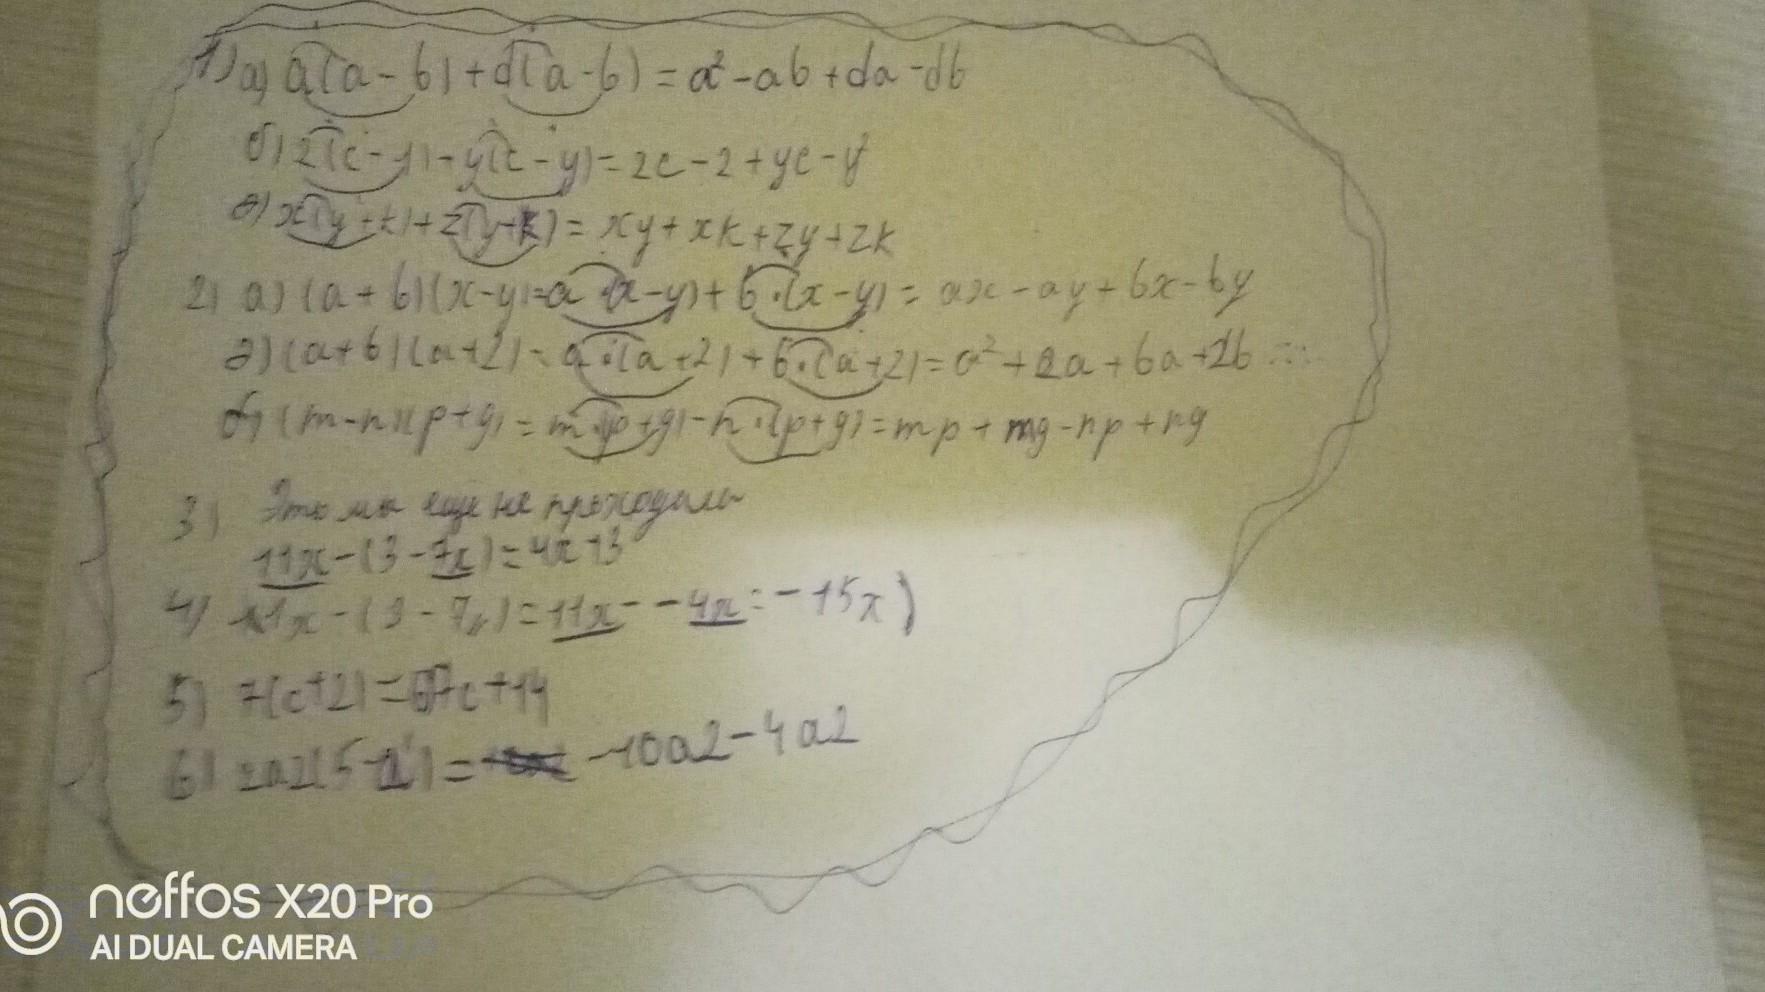 1) а) a(a-b)+d(a-b)=a²-ab+da-db
б) 2(c-y)-y(c-y)=2c-2+yc-y²
в) x(y+k)+z(y+k)=xy+xk+zy+zk
2) а) (a+b)(x-y)=a·(x-y)+b·(x-y)=ax-ay+bx-by
в) (a+b)(a+2)=a·(a+2)+b·(a+2)=a²+2a+ba+2b
б) (m-n)(p+g)=m·(p+g)-n·(p+g)=mp+mg-np+ng
3) Это мы еще не проходили
11x-(3-7x)=4x+3
4) 11x-(3-7x)=11x--4x=-15x)
5) 7(c+2)=7c+14
6) 2a2(5-a)= -10a2-4a2
neffos X20 Pro
AI DUAL CAMERA